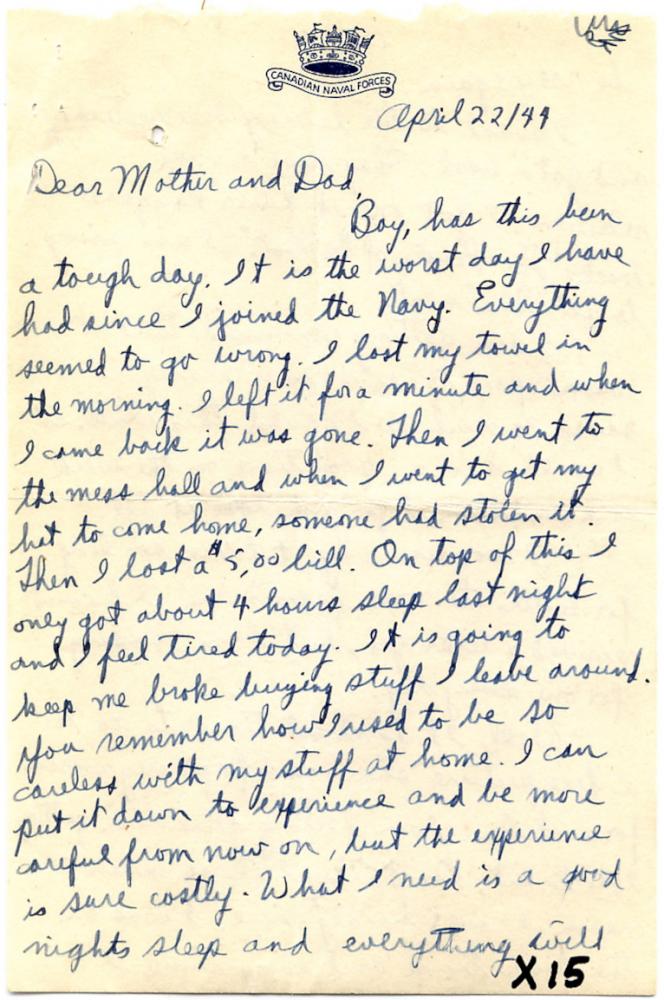 CANADIAN NAVAL FORCES
April 22/44
Dear Mother and Dad,
Boy, has this been
a tough day. It is the worst day I have
had since I joined the Navy. Everything
seemed to go wrong. I lost my towel in
the morning. I left it for a minute and when
I came back it was gone. Then I went to
the mess hall and when I went to get my
hat to come home, someone had stolen it.
Then I lost a $5.00 bill. On top of this I
only got about 4 hours sleep last night
and I feel tired today. It is going to
keep me broke buying stuff I leave around.
You remember how I used to be so
careless with my stuff at home. I can
put it down to experience and be more
careful from now on, but the experience
is sure costly. What I need is a good
nights sleep and everything will
X15